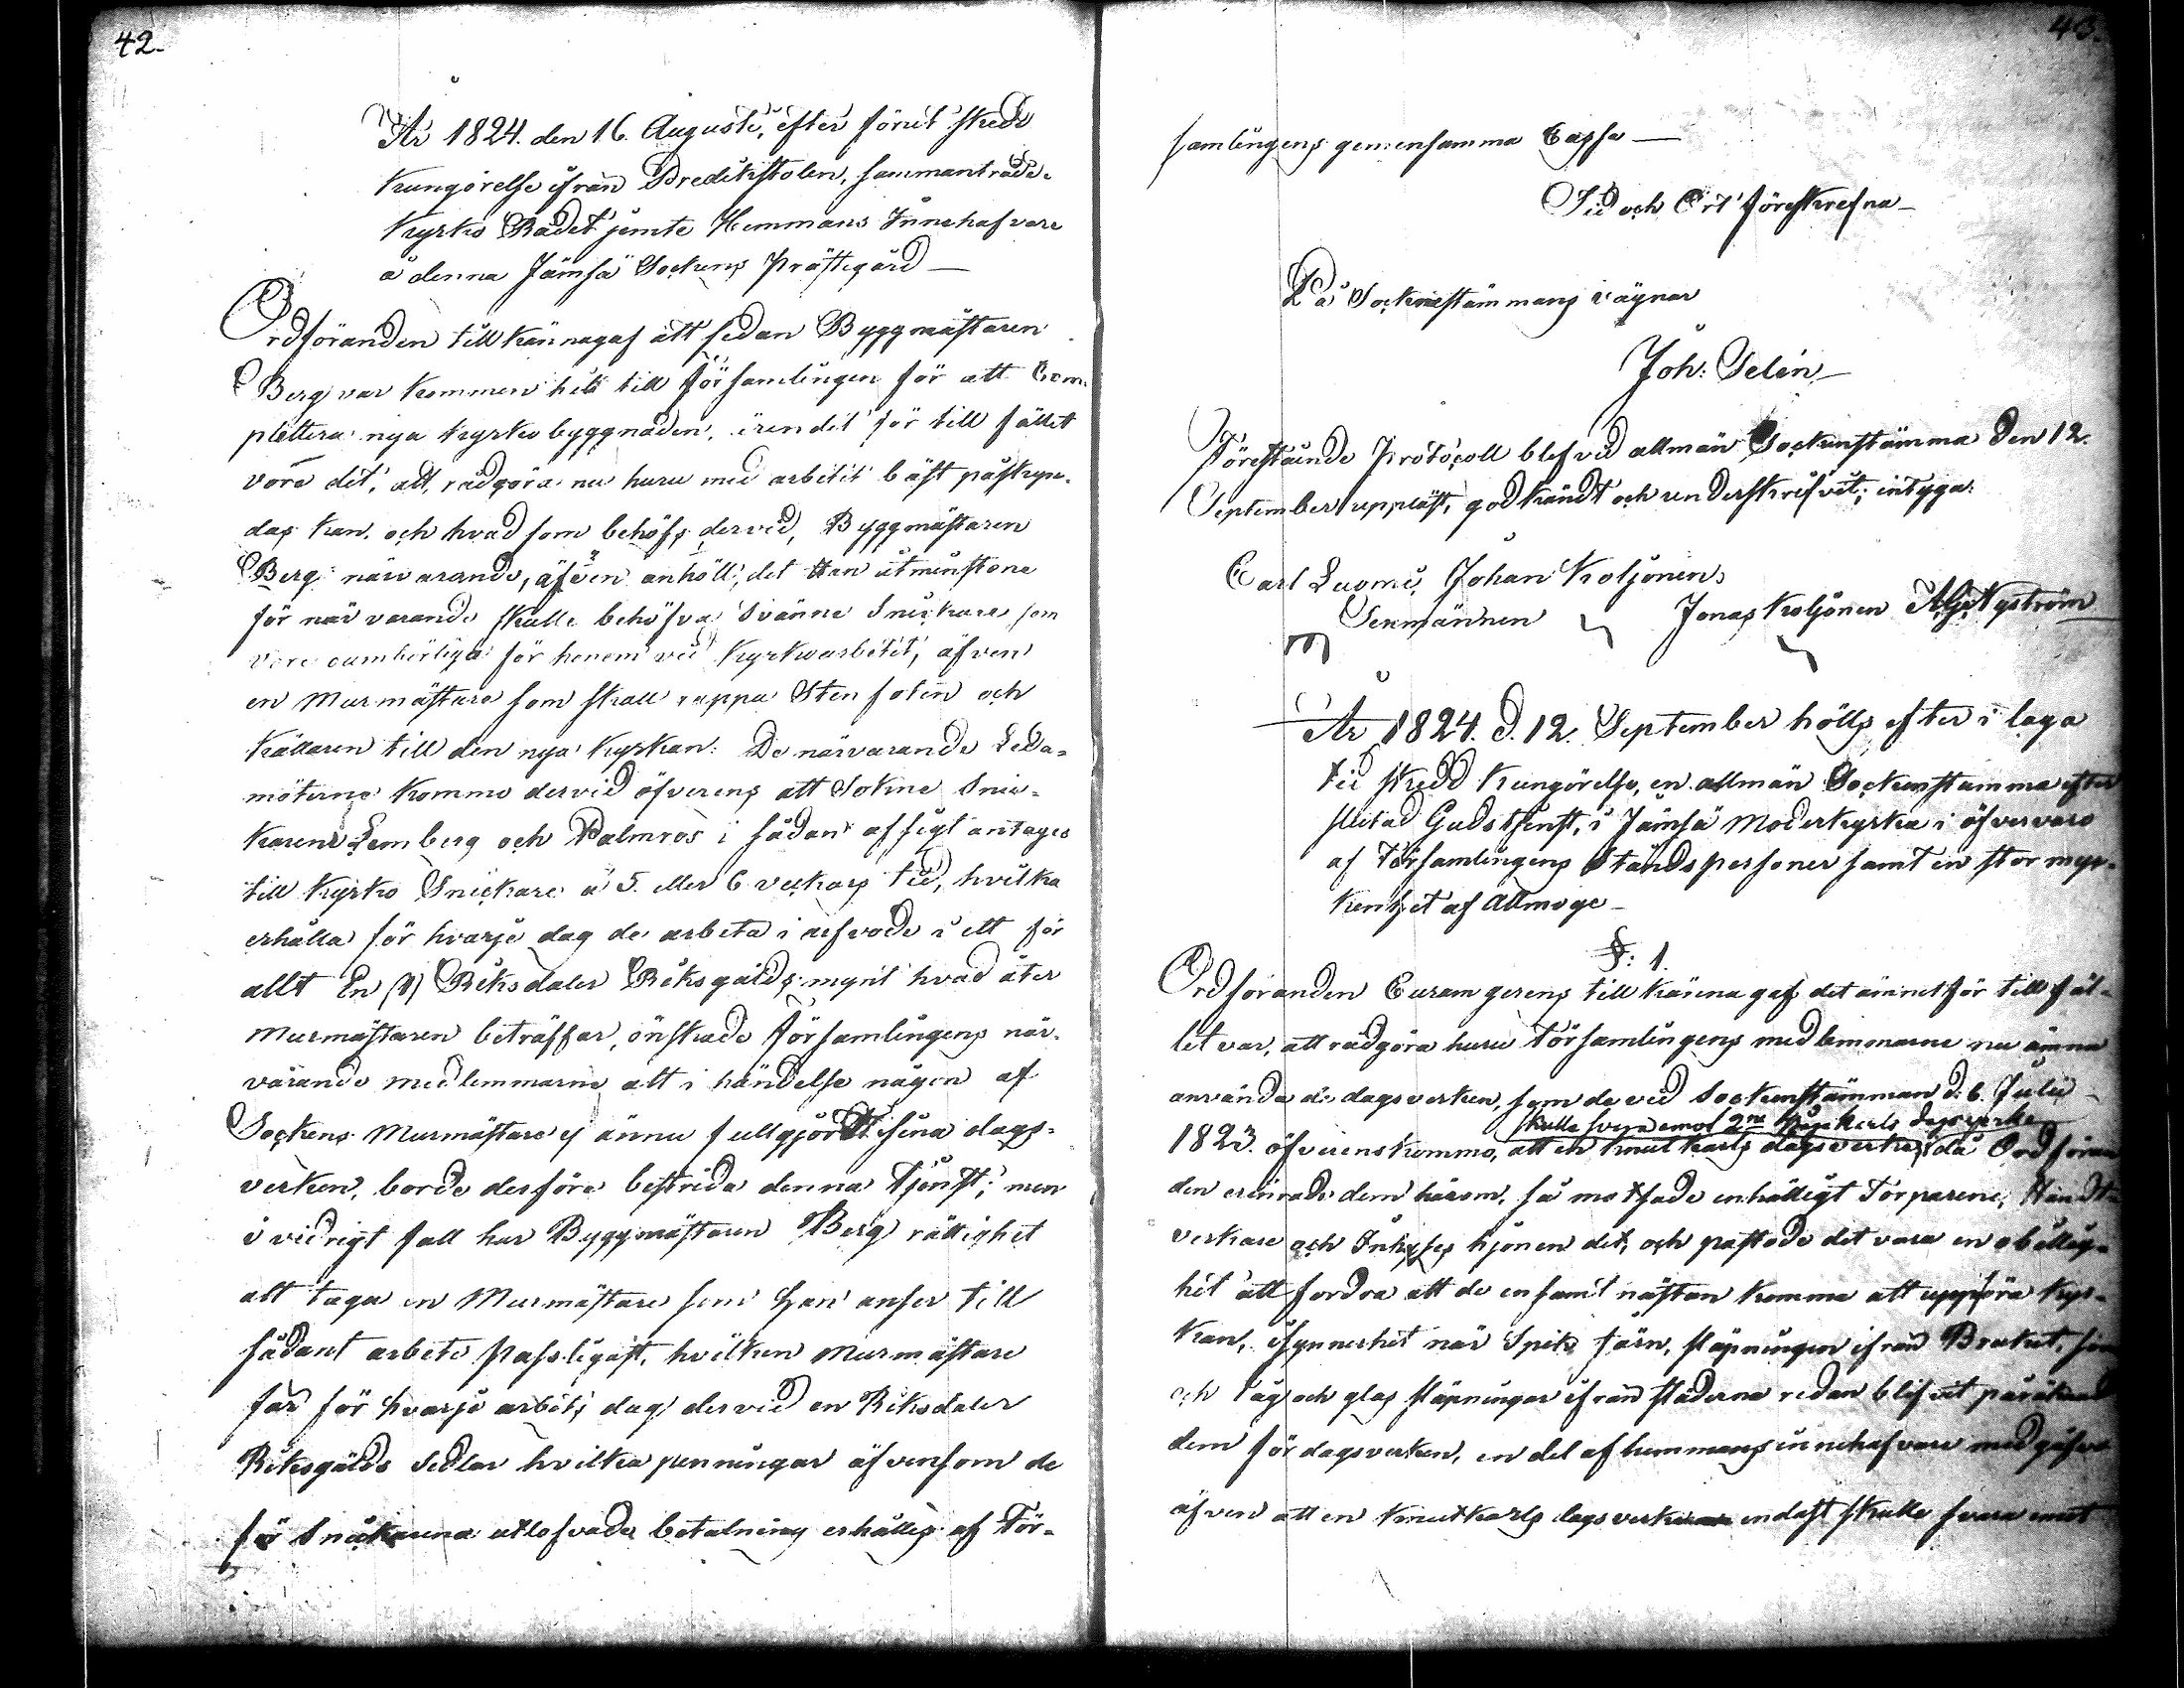 42.
År 1824. den 16. Augusti, efter förut skedd
kungörelse ifrån Predikstolen, sammanträdde
Kyrko Rådet jemte Hemmans Innehafvare
å denna Jämsä Sockens Prästegård —
Ordföranden tillkännagaf att sedan Byggmästaren
Berg var kommen hit till Församlingen för att Com-
plettera nya kyrkobyggnaden, ärendet för tillfället
vore det, att rådgöra nu huru med arbetet bäst påskyn-
das kan, och hvad som behöfs dervid, Byggmästaren
Berg närvarande, äfven anhöll, det Han åtminstone
för närvarande skulle behöfva tvänne Snickare som
vore oumbärliga för honom vid kyrkoarbetet, äfven
en Murmästare som skall rappa Stenfoten och
källaren till den nya kyrkan: De närvarande Leda-
möterne kommo dervid öfverens att Sokne Snic-
karene Lemberg och Palmros i sådan afsigt antages
till Kyrko Snickare å 5. eller 6 veckors tid, hvilka
erhålla för hvarje dag de arbeta i arfvode i ett för
allt En (1) Riksdaler Riksgälds mynt hvad åter
Murmästaren beträffar, önskade Församlingens när-
varande medlemmarne att i händelse någon af
Sockens Murmästare ej ännu fullgjordt sina dags-
verken, borde derföre bestrida denna tjenst; men
i vidrigt fall har Byggmästaren Berg rättighet
att taga en Murmästare som han anser till
sådant arbete passligast, hvilken Murmästare
får för hvarje arbets dag dervid en Riksdaler
Riksgälds Sedlar hvilka penningar äfvensom de
för Snickarena utlofvade betalning erhålles af För-
43.
samlingens gemensamma Cassa —
Tid och Ort föreskrefna —
På Socknestämmans vägnar
Joh: Selin —
Förestående Protocoll blef vid allmän Sockenstämma den 12.
September uppläst, godkändt och underskrifvit; intyga:
Carl Luomi, Johan Koljonen,
Sexmännen Jonas Koljonen Nyström
År 1824. d. 12. September hölls efter i laga
tid skedd kungörelse, en allmän Sockenstämma efter
slutad Gudstjenst, i Jämsä Moderkyrka i öfvervaro
af Församlingens Ståndspersoner samt en stor myc-
kenhet af Allmoge —
§: 1.
Ordföranden Curam gerens tillkännagaf det ämnet för tillfäl-
let var, att rådgöra huru Församlingens medlemmarne nu ämna
använda de dagsverken, som de vid Sockenstämman d. 6. Julii
skulle svara emot 2ne dagsverke
1823. öfverenskommo, att en knutkarls dagsverke, då Ordföran
den erinrade dem härom, så motsade enhälligt Torparene, Handt-
verkare och Inhyses hjonen det, och påstode det vara en obillig-
het att fordra att de ensamt nästan komma att uppföra kyr-
kan, i synnerhet när Spik järn, släpningen ifrån Bruket, som
och tåg och glas släpningar ifrån städerna redan blifvit
dem för dagsverken, en del af hemmans innehafvare medgåfvo
äfven att en knutkarls dagsverke endast skulle svara emot